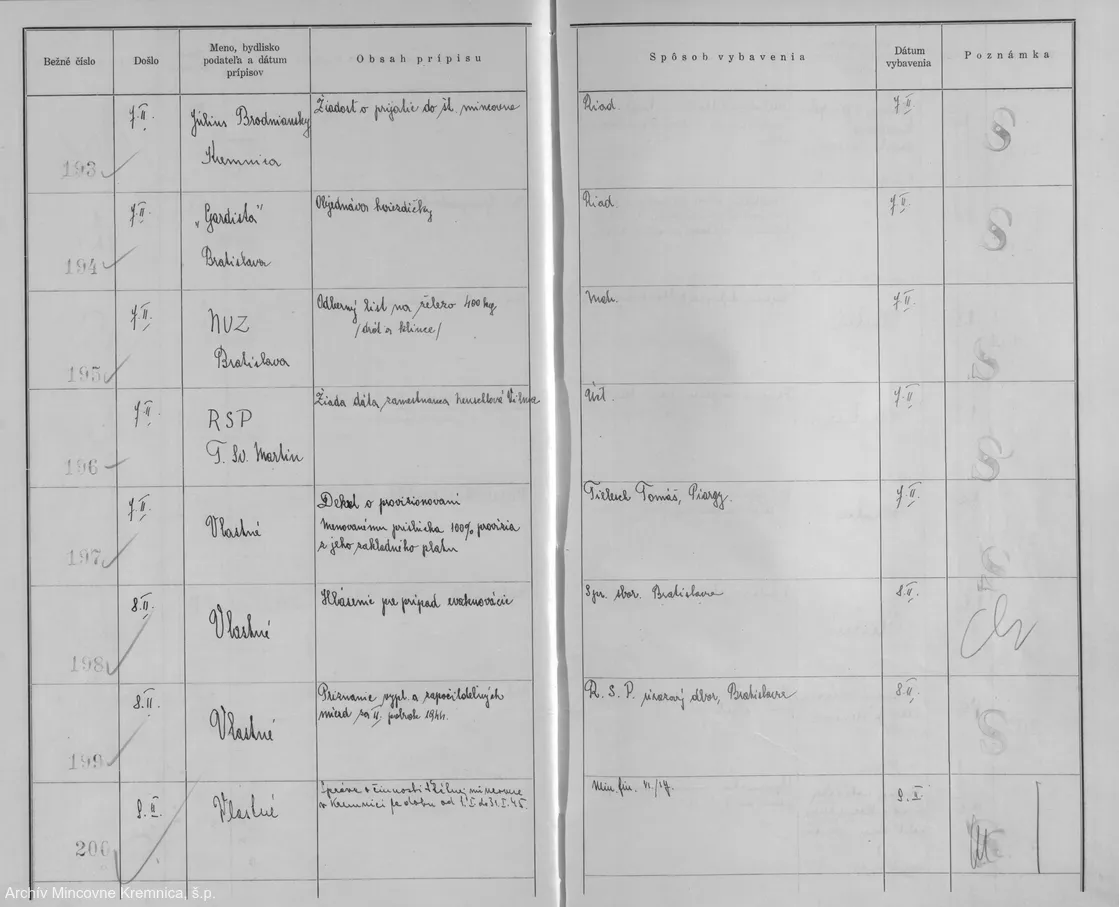 Bežné číslo
Došlo
Meno, bydlisko
podateľa a dátum
prípisov
Obsah prípisu
Spôsob vybavenia
Dátum
vybavenia
Poznámka
193
7.II.
Július Brodniansky
Kremnica
Žiadosť o prijatie do št. mincovne
Riad.
7.II.
194
7.II.
„Gardista"
Bratislava
Objednávka hviezdičky
Riad.
7.II.
195
7.II.
NUZ
Bratislava
Odberný list na železo 400 kg
/drôt a klince/
Mah.
7.II.
196
7.II.
RSP
T. Sv. Martin
Žiada dáta, zamestnanca
Účt.
7.II.
197
7.II.
Vlastné
Dekret o provizionovaní
Menovanému prislúcha 100% provizia
z jeho základného platu
Tomáš, Piargy.
7.II.
198
8.II.
Vlastné
Hlásenie pre prípad
Spr. sbor. Bratislava
8.II.
199
8.II.
Vlastné
Priznanie vypl. a započítateľných
miezd za II. polrok 1944.
R. S. P. úrazový odbor, Bratislava
8.II.
200
9.II.
Vlastné
Správa o činnosti štátnej mincovne
v Kremnici za dobu od 1.I. do 31.I.45.
Min. fin.
9.II.
Archív Mincovne Kremnica, š.p.